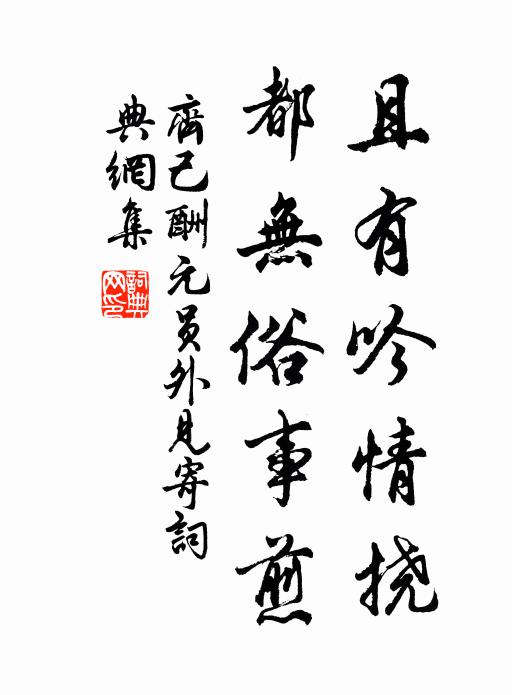 且有吟情挠
都無俗事煎
齊己酬元员外見寄詞
典網集
詞典
网印